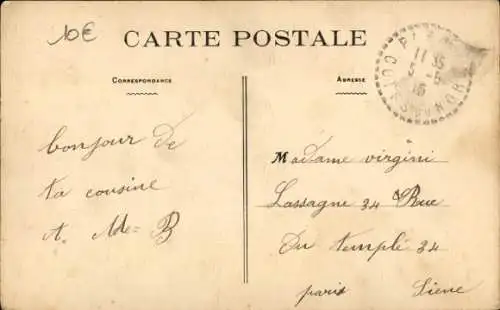 10€
CARTE POSTALE
CORRESPONDANCE
ADRESSE
11 35
3 - 5
15
DU NORD
bonjour De
ta cousine
Madame virgini
Lassagne 34 Rue
Du templé 34
paris Siene